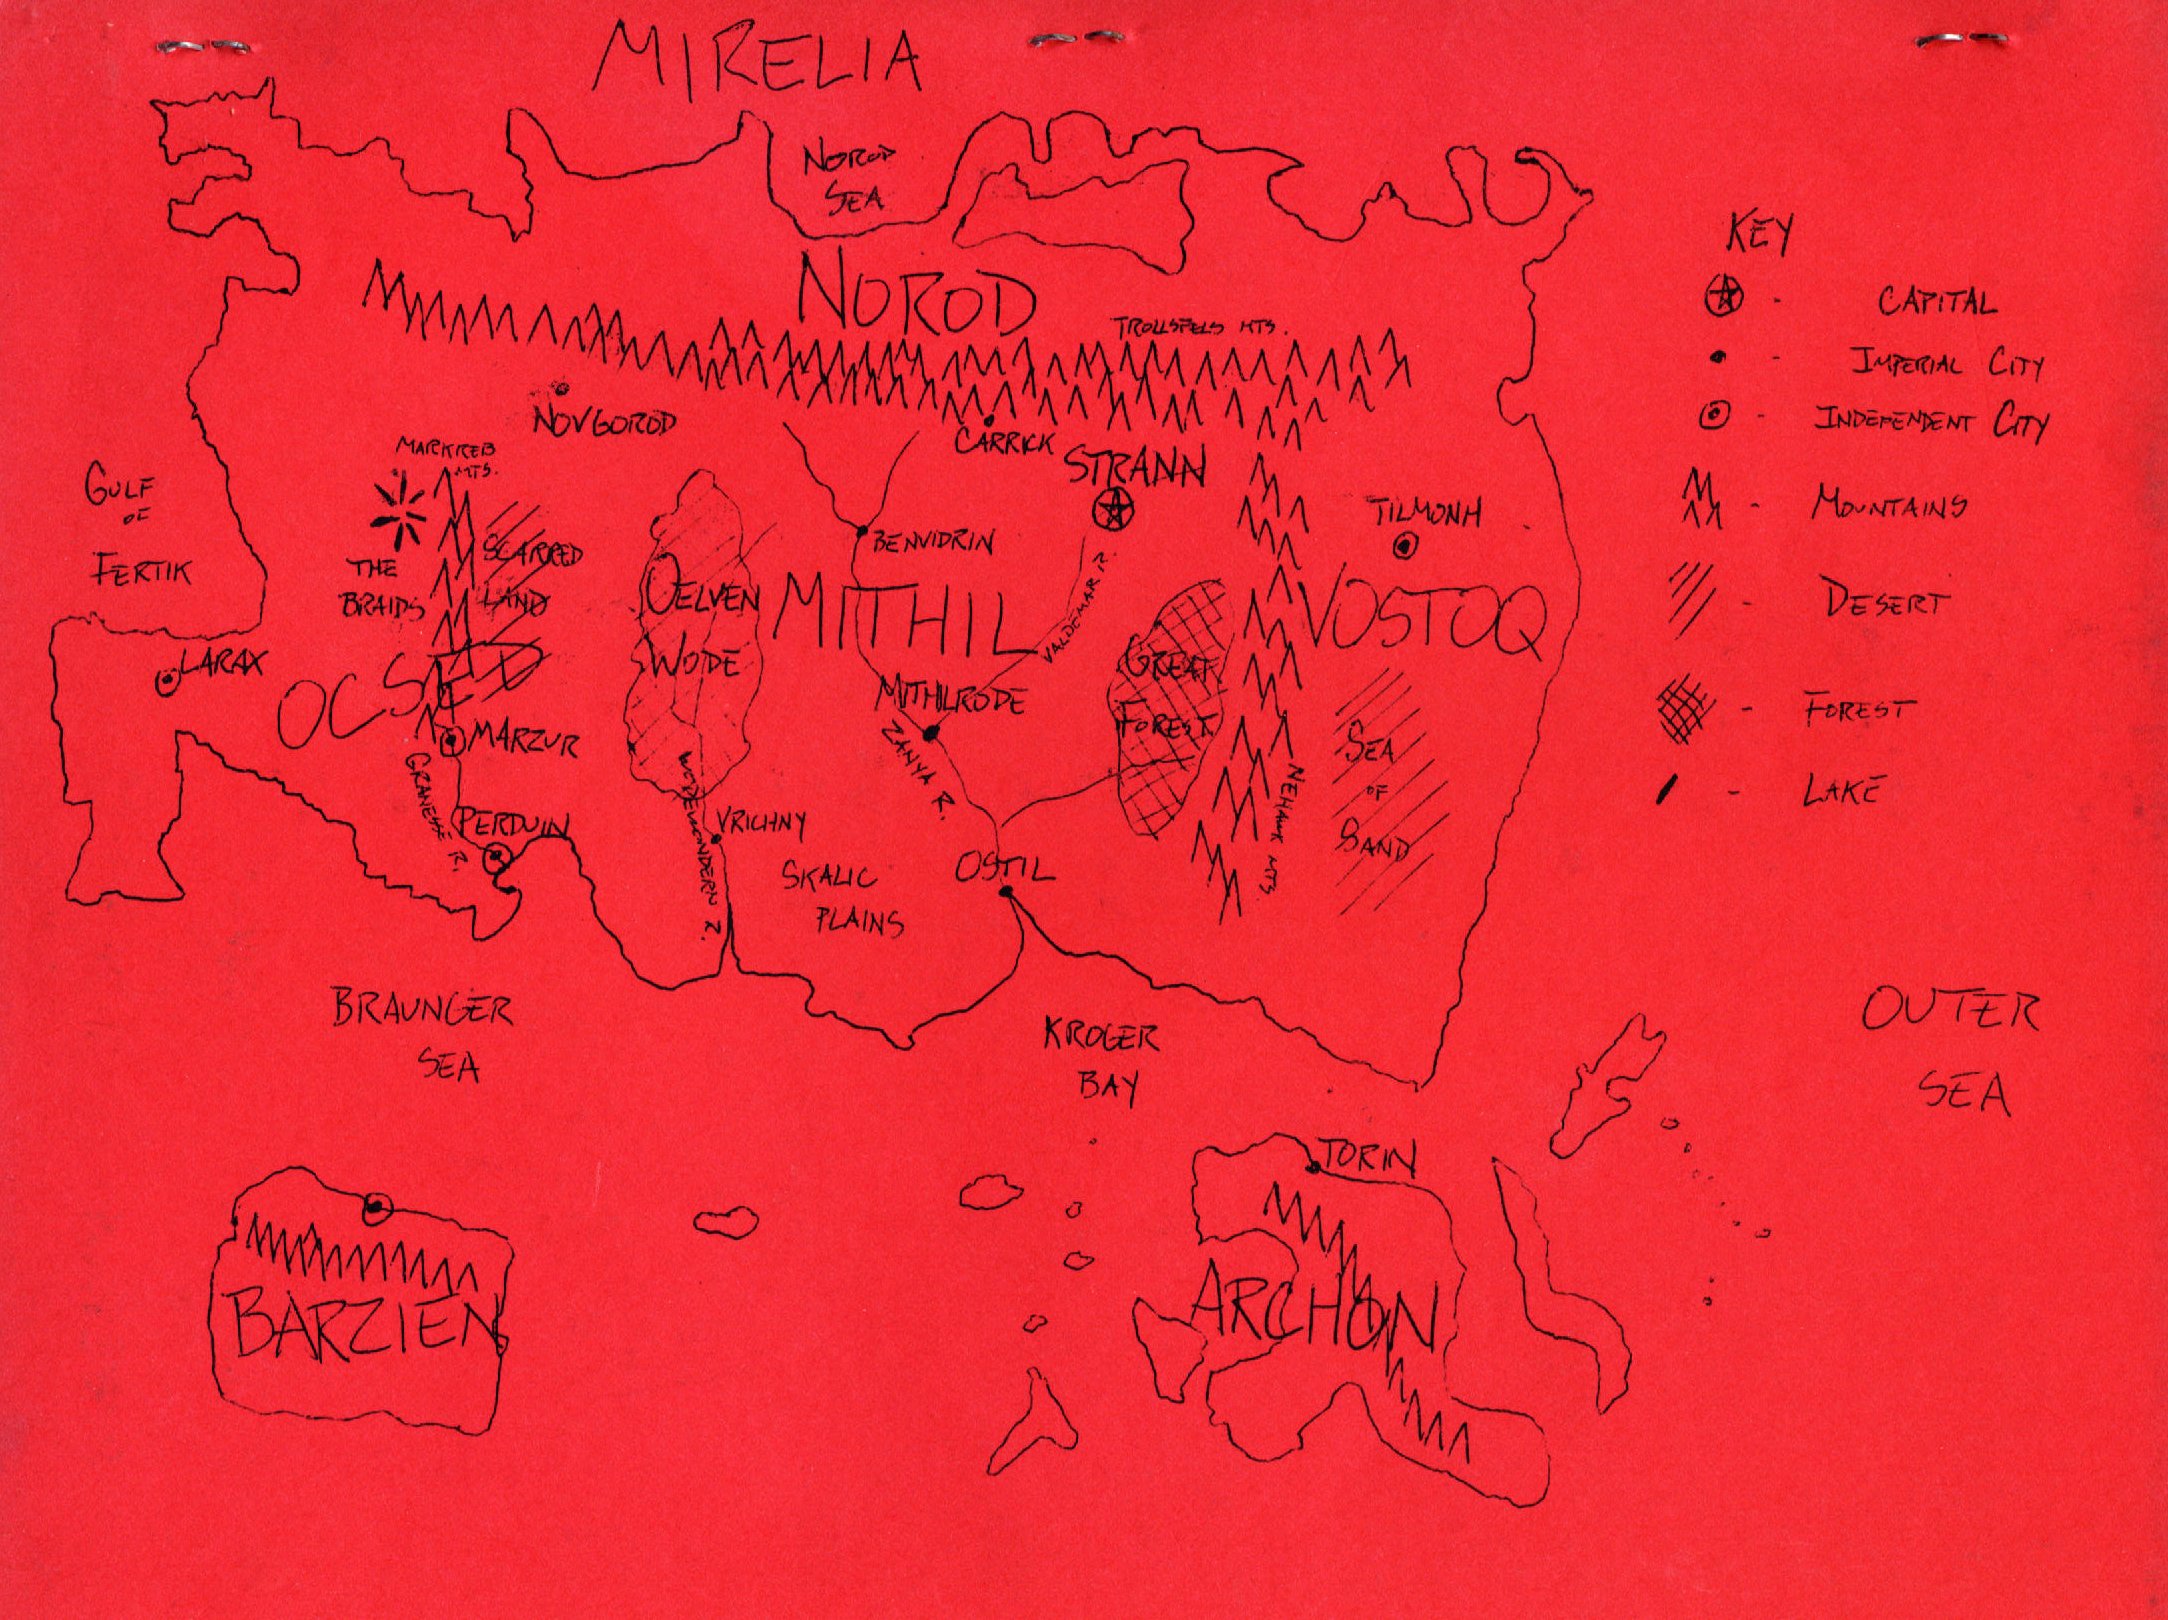 MIRELIA
NOROD
SEA
NOROD
TROLLSFELS MTS.
KEY
- CAPITAL
- IMPERIAL CITY
- INDEPENDENT CITY
- MOUNTAINS
- DESERT
- FOREST
- LAKE
NOVGOROD
CARRICK
STRANN
MARKREB
MTS.
GULF
OF
FERTIK
THE
BRAIDS
SCARRED
LAND
OELVEN
WODE
BENVIDRIN
MITHIL
VALDEMAR R.
TILMONH
VOSTOQ
GREAT
FOREST
LARAX
OCSED
MARZUR
GRANESSE R.
PERDUIN
WODEWONDERN R.
VRICHNY
MITHILRODE
ZANYA R.
SKALIC
PLAINS
OSTIL
NEHAWK MTS.
SEA
OF
SAND
BRAUNGER
SEA
KROGER
BAY
OUTER
SEA
BARZIEN
TORIN
ARCHON